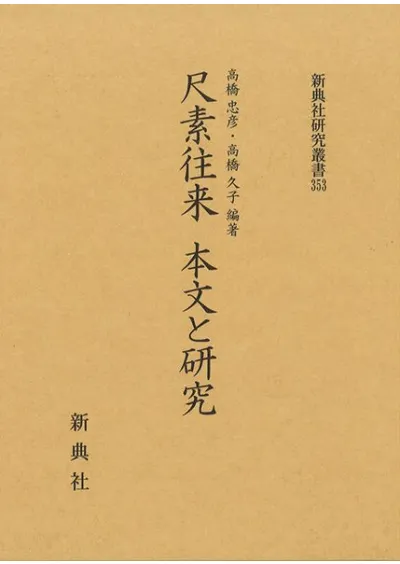 新典社研究叢書353
高橋 忠彦・高橋 久子 編著
尺素往来 本文と研究
新典社